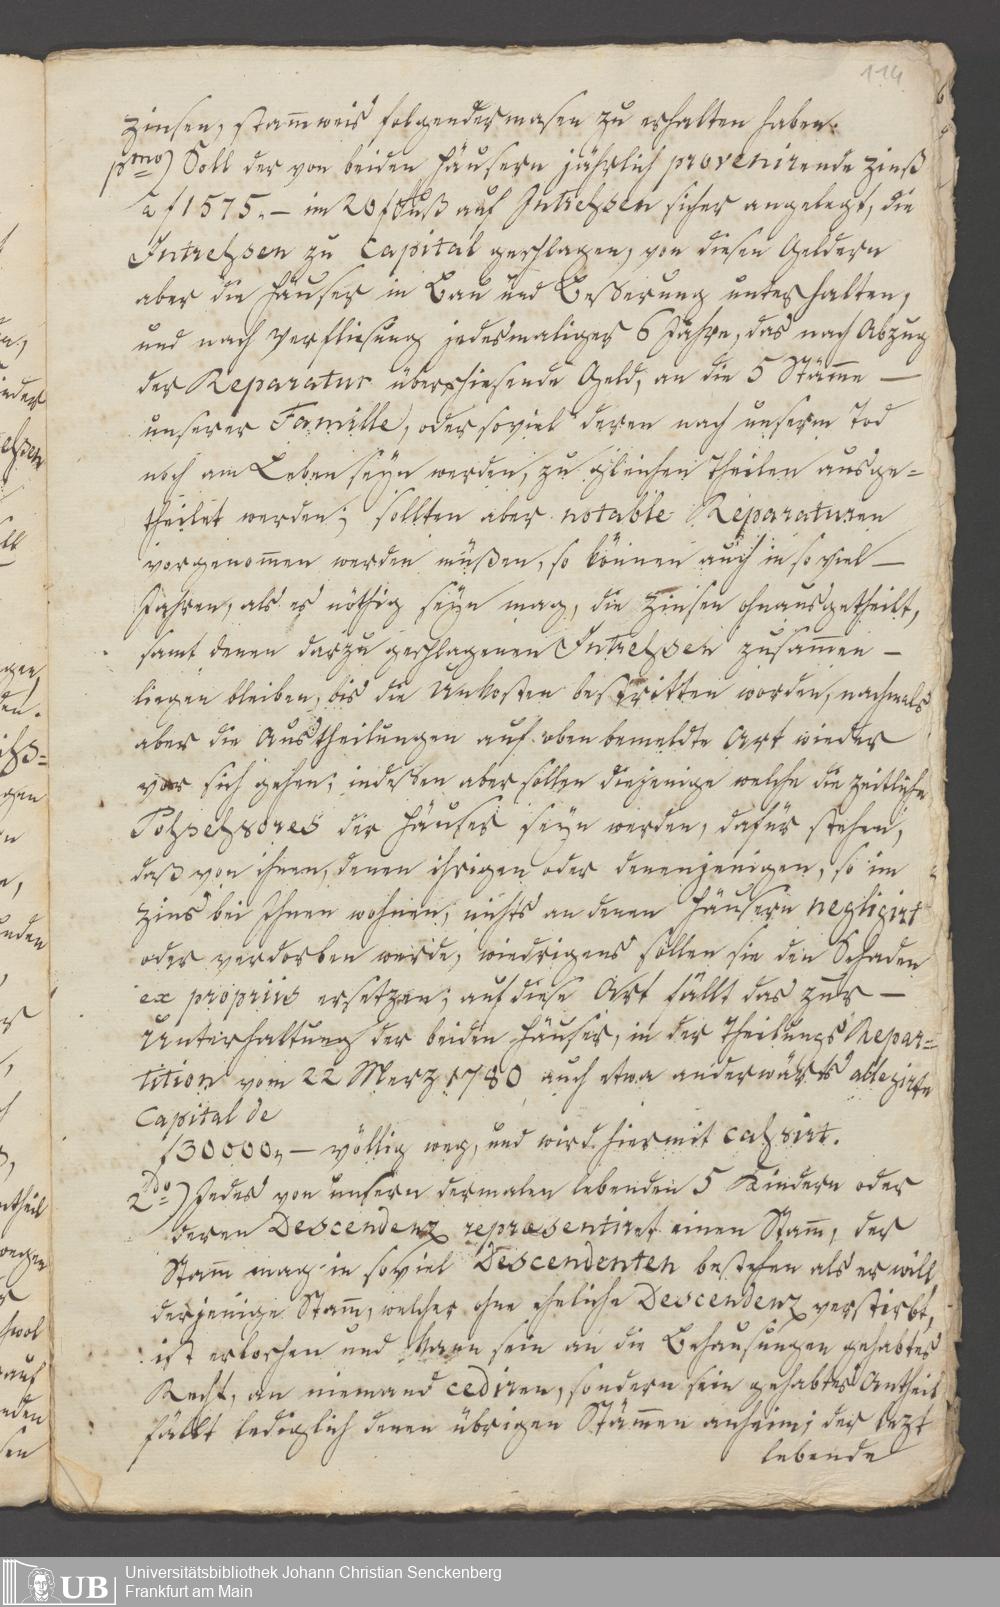 114
Zinsen, stam̄weis folgendermasen zu erhalten haben.
pmo) Soll der von beiden Häusern jährlich provenirende Zinß
a f 1575.- im 20 f Fuß auf Intreßsen sicher angelegt, die
Intreßsen zu Capital geschlagen, von diesen Geldern
aber die Häuser in Bau und Beßerung unterhalten,
und nach Verfliesung jedesmaliger 6 Jahre, das nach Abzug
der Reparatur überschiesende Geld, an die 5 Stäm̄e —
unserer Famille, oder soviel deren nach unserm Tod
noch am Leben seyn werden, zu gleichen Theilen ausge=
theilet werden; sollten aber notable Reparaturen
vorgenom̄en werden müßen, so können auch in so viel —
Jahren, als es nöthig seyn mag, die Zinsen ohnausgetheilt,
samt denen darzu geschlagenen Intreßsen zusam̄en —
liegen bleiben, bis die Unkosten bestritten worden, nachmals
aber die Austheilungen auf oben bemeldte Art wieder
vor sich gehen; indeßen aber sollen diejenige welche die zeitliche
Poßseßsores der Häuser seyn werden, dafür stehen,
daß von ihnen, denen ihrigen oder denenjenigen, so im
Zins bei Ihnen wohnen, nichts an denen Häusern negligirt
oder verdorben werde, wiedrigens sollen sie den Schaden
ex propriis ersetzen; auf diese Art fällt das zur —
Unterhaltung der beiden Häuser, in der Theilungs Repar=
tition vom 22 Merz 1780 auch etwa anderwärts ablegirte
Capital de
f 30000.- völlig weg, und wird hiermit caßsirt.
2do) Jedes von unsern dermalen lebenden 5 Kindern oder
deren Descendenz repræsentiret einen Stam̄, der
Stam̄ mag in soviel Descendenten bestehen als er will,
derjenige Stam̄, welcher ohne eheliche Descendenz verstirbt,
ist erloschen und kann sein an die Behausungen gehabtes
Recht, an niemand cediren, sondern sein gehabtes Antheil
fällt lediglich denen übrigen Stäm̄en anheim; der lezt
lebende
UB
Universitätsbibliothek Johann Christian Senckenberg
Frankfurt am Main